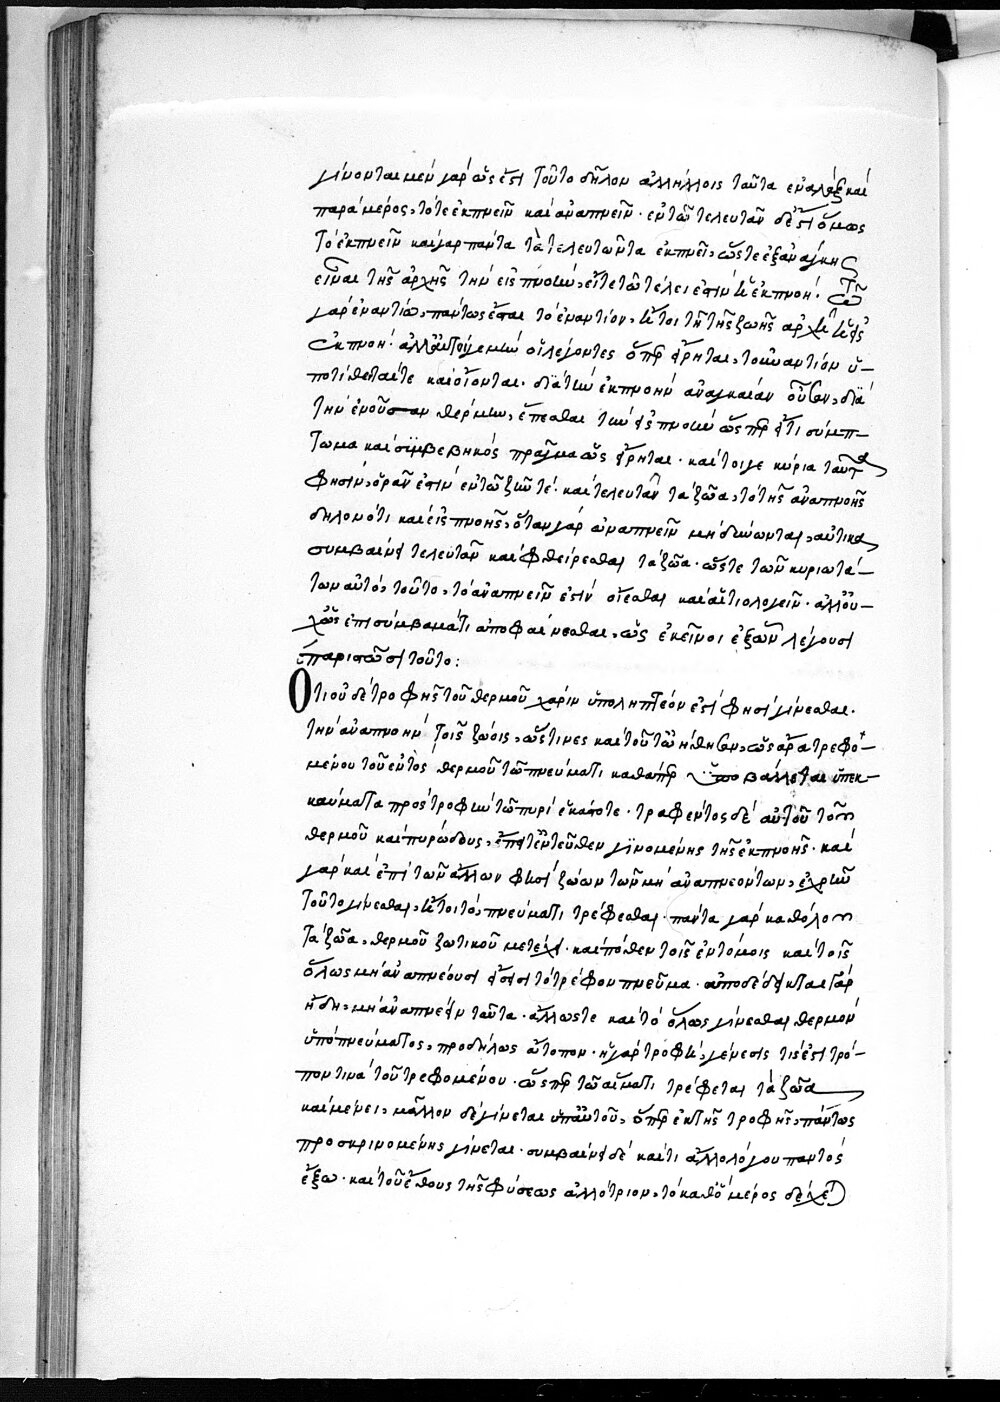 γίνονται μὲν γὰρ ὥς ἐστι τοῦτο δῆλον ἀλλήλοις ταῦτα ἐναλὰξ καὶ
παρὰ μέρος, τότε ἐκπνεῖν καὶ ἀναπνεῖν· ἐν τῶ τελευτᾶν δέ ἐστι ὅμως
τὸ ἐκπνεῖν καὶ γὰρ πάντα τὰ τελευτῶντα ἐκπνεῖ, ὥστε ἐξ ἀνάγκης
εἶναι τῆς ἀρχῆς τὴν εἰσπνοὴν, εἴτε τῶ τέλει ἐστὶν ἡ ἐκπνοή· τῶ
γὰρ ἐναντίω, πάντως ἔσται τὸ ἐναντίον, ἤτοι τῆ τῆς ζωῆς ἀρχῆ ἡ εἰσ
ἐκπνοή· ἀλλ' αὐτοί γε μὴν οἱ λέγοντες ὅπερ εἴρηται, τοὐναντίον ὑ-
ποτίθεται τε καὶ οἴονται· διὰ τὴν ἐκπνοὴν ἀναγκαίαν οὖσαν, διὰ
τὴν ἐνοῦσαν θέρμην, ἕπεσθαι τὴν εἰσπνοὴν ὥσπερ ἔτι σύμπ-
τωμα καὶ συμβεβηκὸς πρᾶγμα ὡς εἴρηται· καί τοι γε κύρια ταῦτα
φησὶν, ὁρᾶν ἐστὶν ἐν τῶ ζῆν τε· καὶ τελευτᾶν τὰ ζῶα, τὸ τῆς ἀναπνοῆς
δηλονότι καὶ εἰσπνοῆς, ὅταν γὰρ ἀναπνεῖν μὴ δύνωνται, αὐτίκα
συμβαίνει τελευτᾶν καὶ φθείρεσθαι τὰ ζῶα· ὥστε τῶν κυριωτά-
των αὐτὸ, τοῦτο, τὸ ἀναπνεῖν ἐστὶν οἴεσθαι καὶ αἰτιολογεῖν· ἀλλ' οὐ-
χ ὡς ἐπισύμβαμάτι ἀποφαίνεσθαι, ὡς ἐκεῖνοι ἐξ ὧν λέγουσι
παριστῶσι τοῦτο:
Ὅτι οὐδὲ τροφῆς τοῦ θερμοῦ χάριν ὑποληπτέον ἐστὶ φησὶ γίνεσθαι.
τὴν ἀναπνοὴν τοῖς ζώοις, ὥς τινες καὶ τοῦτο ᾠήθησαν, ὡς ἄρα τρεφο-
μένου τοῦ ἐντὸς θερμοῦ τῶ πνεύματι καθάπερ ὑποβάλλεται ὑπεκ-
καύματα πρὸς τροφὴν τῶ πυρὶ ἑκάστοτε· τραφέντος δὲ αὐτοῦ τοῦ
θερμοῦ καὶ πυρώδους, ἐπὶ τἐντεῦθεν γινομένης τῆς ἐκπνοῆς· καὶ
γὰρ καὶ ἐπὶ τῶν ἄλλων φησὶ ζώων τῶν μὴ ἀναπνεόντων, ἐχρῆν
τοῦτο γίνεσθαι, ἤτοι τὸ, πνεύματι τρέφεσθαι· πάντα γὰρ καθόλου
τὰ ζῶα, θερμοῦ ζωτικοῦ μετέχει· καὶ πόθεν τοῖς ἐντόμοις καὶ τοῖς
ὅλως μὴ ἀναπνέουσι εἴσεισι τὸ τρέφον πνεῦμα· ἀποδέδεικται γὰρ
ἤδη, μὴ ἀναπνεῖν ταῦτα· ἄλλως τε καὶ τὸ ὅλως γίνεσθαι θερμὸν
ὑπὸ πνεύματος, προδήλως ἄτοπον· ἡ γὰρ τροφὴ, γένεσίς τις ἐστὶ τρό-
πον τινὰ τοῦ τρεφομένου· ὥσπερ τῶ αἵματι τρέφεται τὰ ζῶα
καὶ μένει, μᾶλλον δὲ γίνεται ὑπ' αὐτοῦ, ὅπερ ἐκ τῆς τροφῆς, πάντως
προσκρινομένης γίνεται· συμβαίνει δὲ καί τι ἄλλο λόγου παντὸς
ἔξω· καὶ τοῦ ἔθους τῆς φύσεως ἀλλότριον, τὸ καθ' ὃ μέρος δέχε